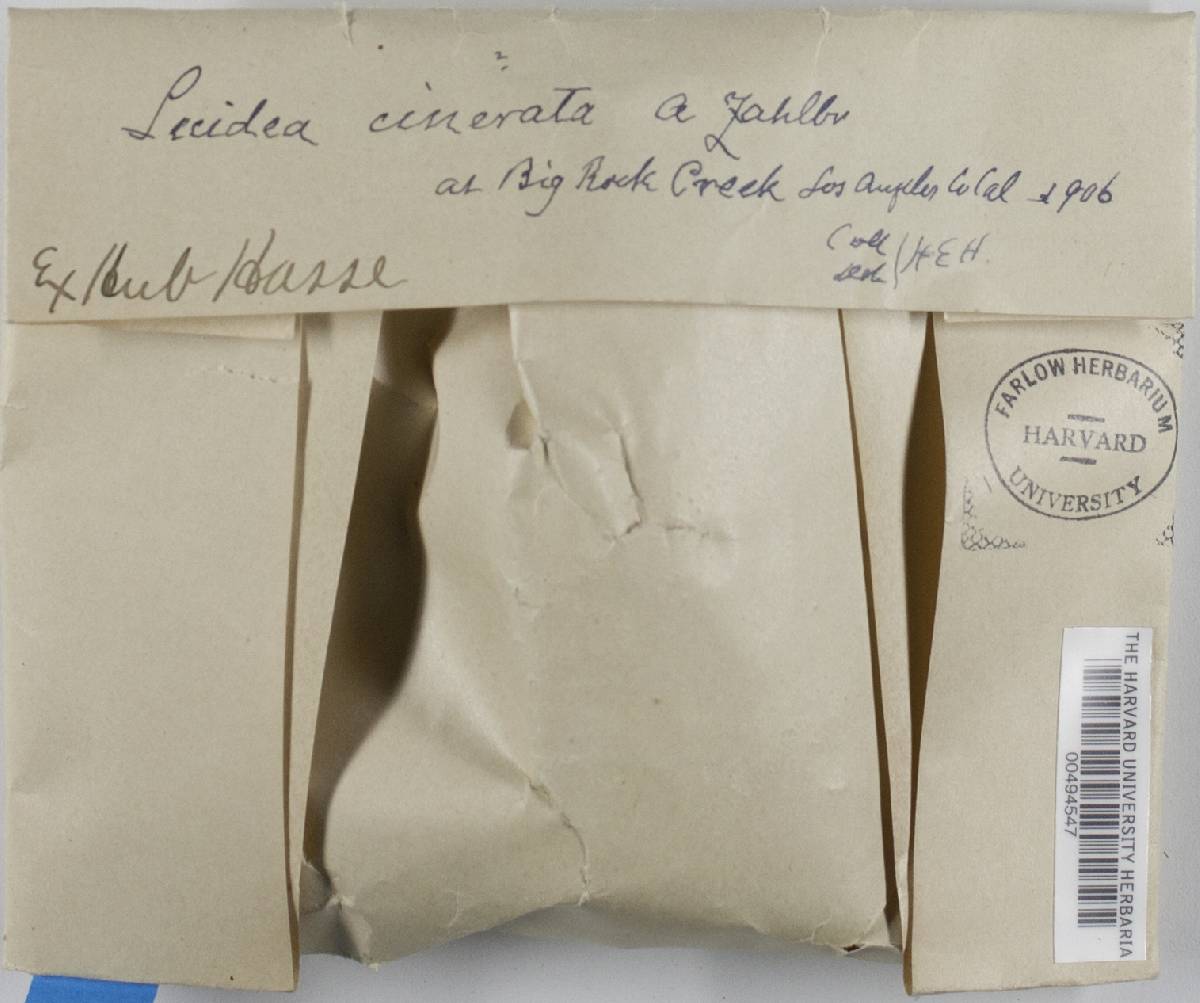 Lecidea cinerata A Zahlbr
at Big Rock Creek Los Angeles Co Cal 1906
Coll
H E H.
Ex Herb Hasse
FARLOW HERBARIUM
HARVARD
UNIVERSITY
THE HARVARD UNIVERSITY HERBARIA
00494547